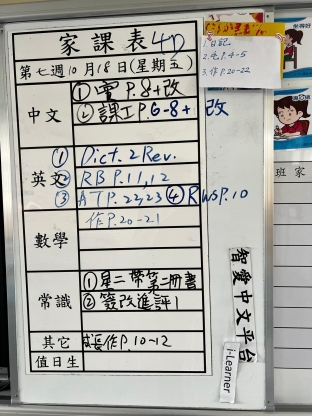 家課表 4D
第七週10月18日(星期五)
中文
① 書P.8+改
② 課工P.6-8+改
英文
① Dict.2 Rev.
② RB P.11,12
③ ATP.22,23 ④ RWS P.10
數學
作P.20-21
常識
① 星二帶第二冊書
② 簽改進評1
其它
成長作P.10-12
值日生
1. 日記
3. 作P.20-22
智愛中文平台
i-Learner
班
家